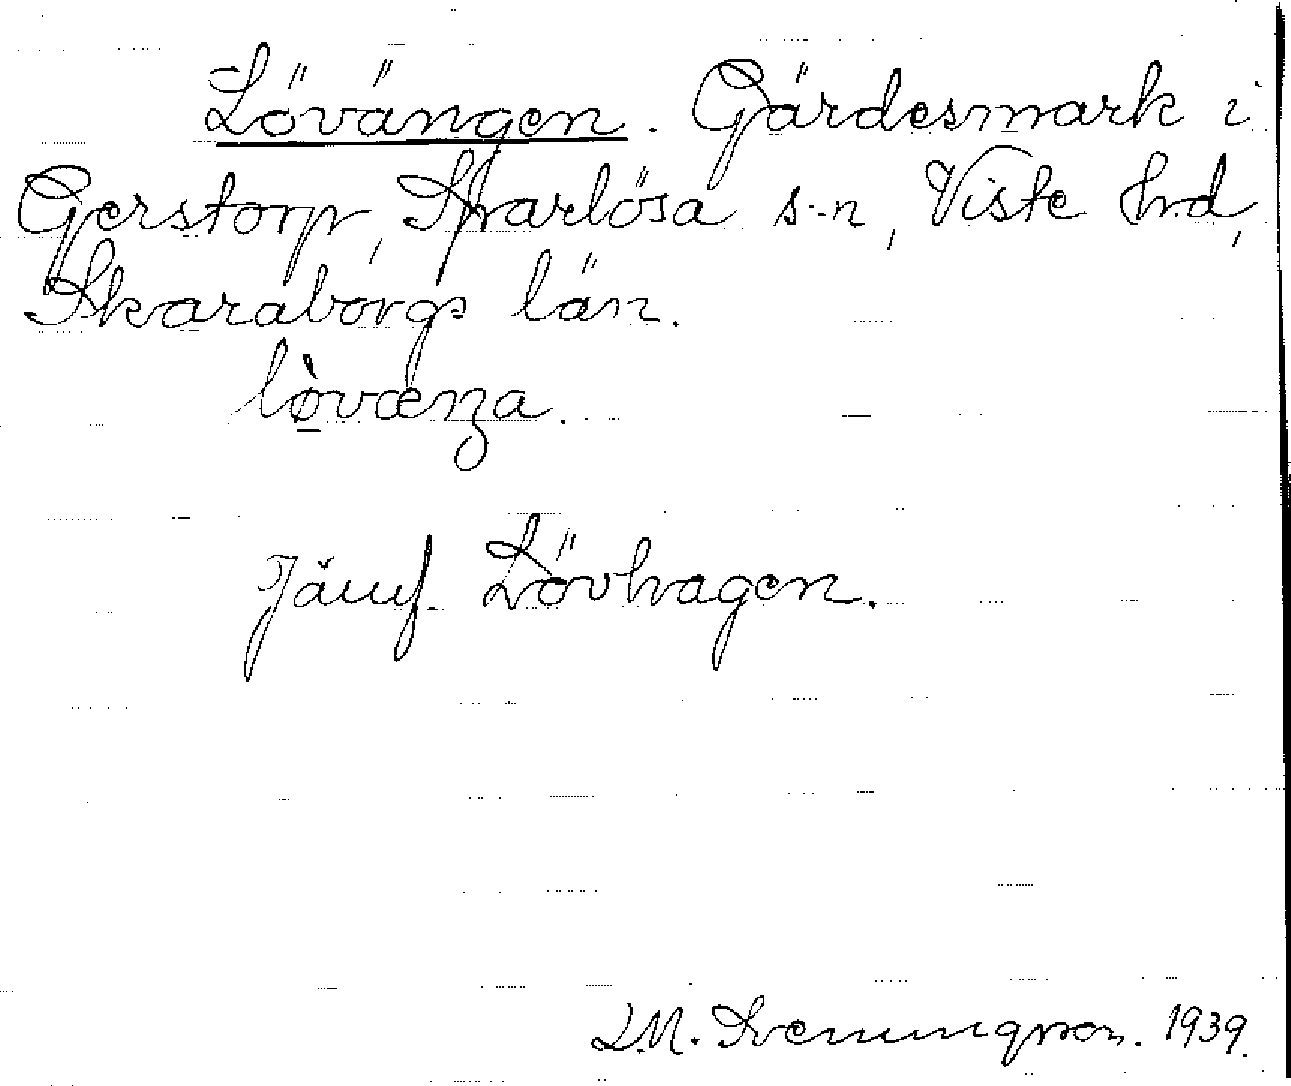 Lövängen. Gärdesmark i
Gerstorp, Sparlösa s-n, Viste hrd,
Skaraborgs län.
lø̀vænʒa.
Jämf. Lövhagen.
L.M. Svenungsson. 1939.